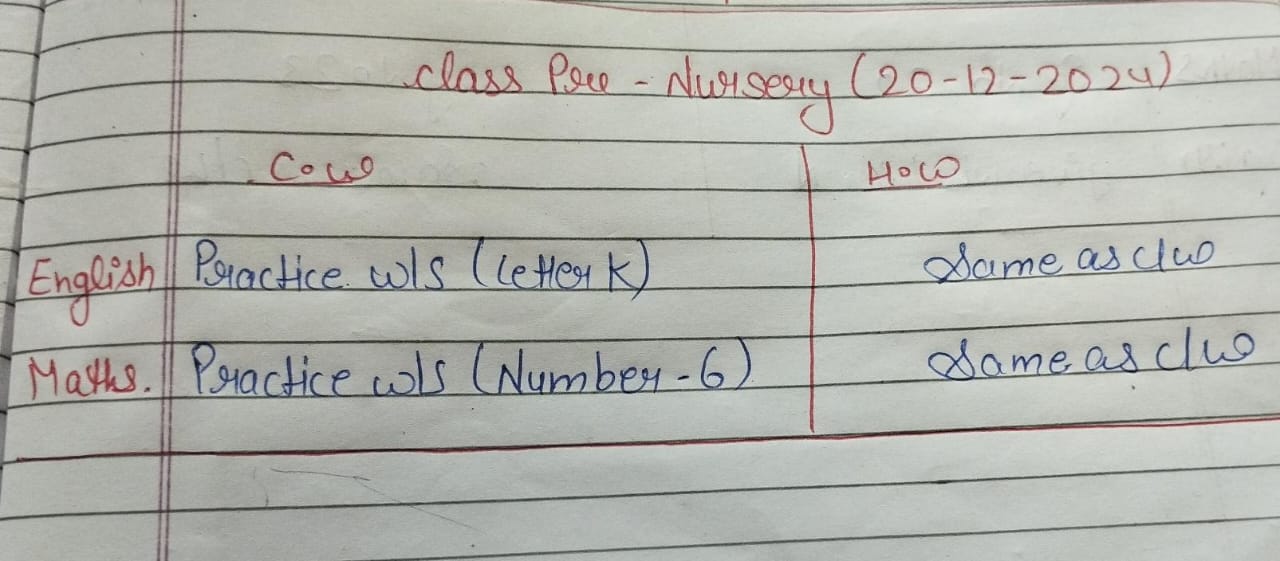 Class Pre - Nursery (20-12-2024)
C.W H.W
English Practice w/s (Letter K) Same as c/w
Maths. Practice w/s (Number - 6) Same as c/w